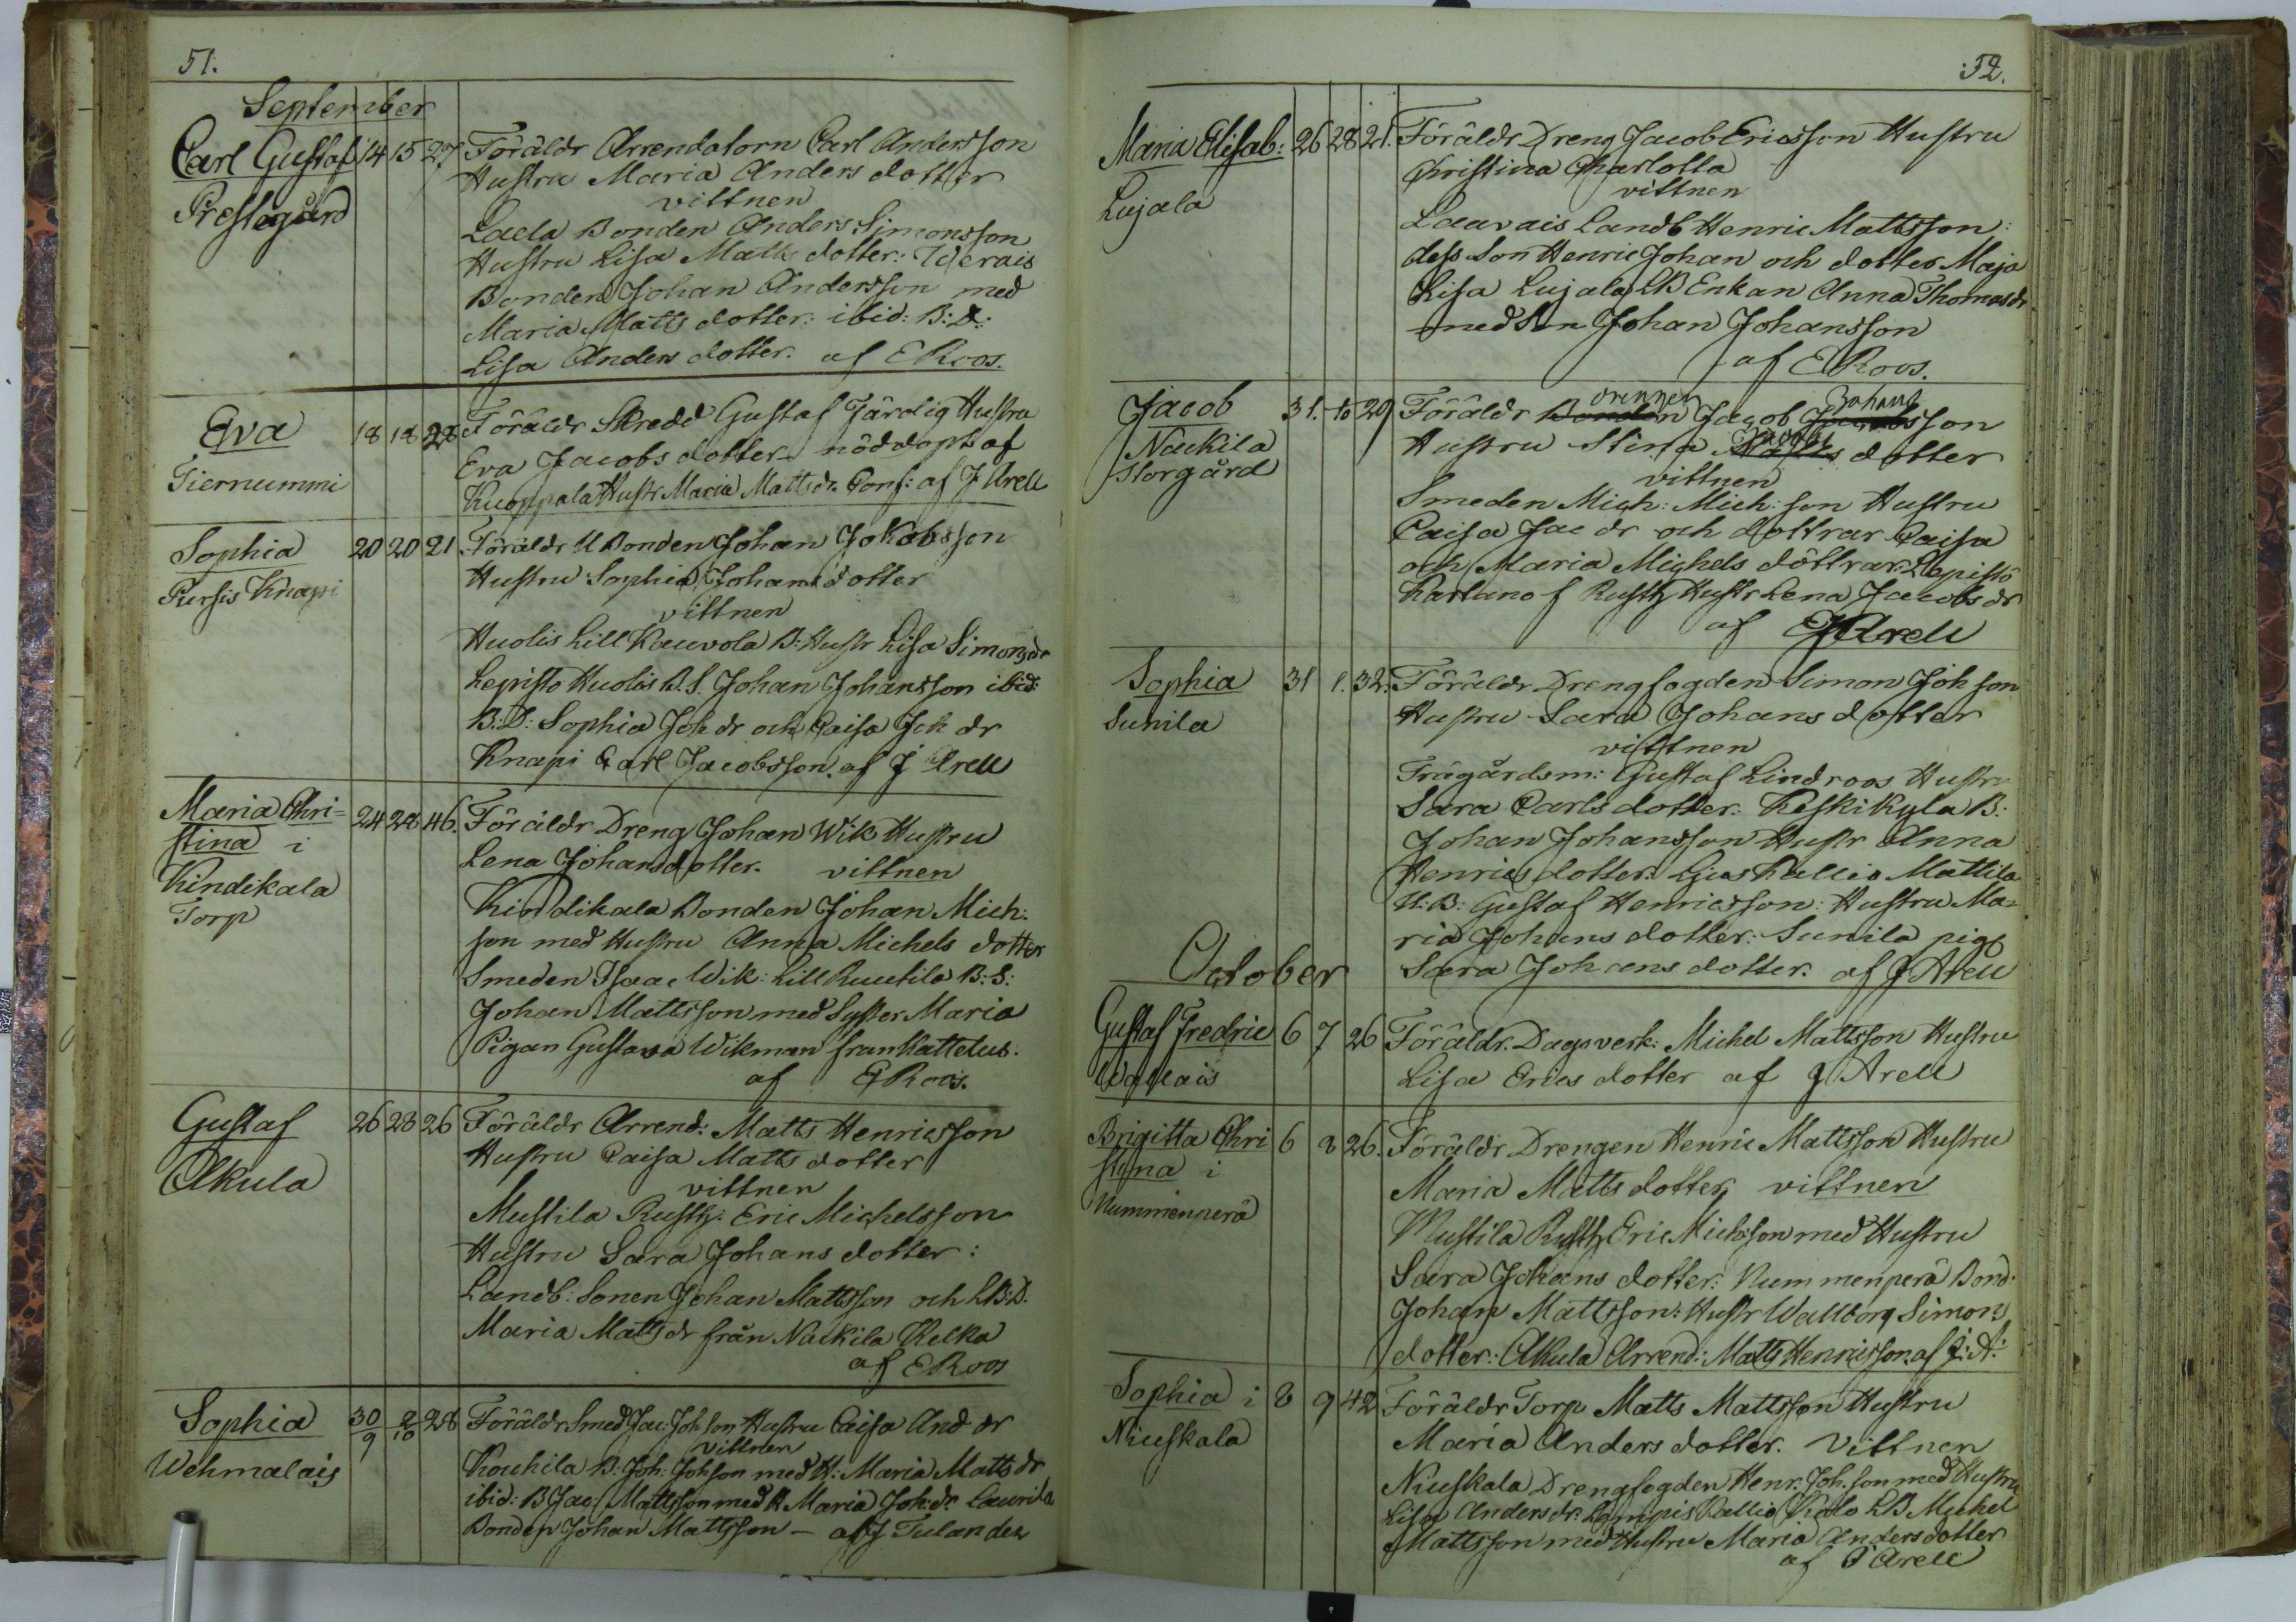 51.
September
Carl Gustaf 14 15 27 Föräldr Arrendatorn Carl Andersson
Prestegård Hustru Maria Anders dotter
vittnen
Laela Bonden Anders Simonsson
Hustru Lisa Matts dotter: Werais
Bonden Johan Andersson med
Maria Matts dotter: ibid: B: D:
Lisa Anders dotter. af E Roos.
Eva 18 18 28 Föräldr Skredd Gustaf Färdig Hustru
Tiernummi Eva Jacobs dotter nöddöpt af
Kuoppala Hustr Maria Matts dr. Conf: af J Arell
Sophia 20 20 21 Föräldr U Bonden Johan Jokobsson
Pursis Knapi Hustru Sophia Johans dotter
vittnen
Huolis Lill Kauvola B: Hustr Lisa Simonsdr
Lepisto Huolis B. S. Johan Johansson ibid:
B: D: Sophia Joh dr och Caisa Joh dr
Knapi Carl Jacobsson. af J Arell
Maria Chri= 24 28 46. Föräldr Dreng Johan Wik Hustru
stina i Lena Johansdotter. vittnen
Kindikala Kindikala Bonden Johan Mich:
Torp son med Hustru Anna Michels dotter
Smeden Isaac Wik: Lill Ruutila B: S:
Johan Mattsson med Syster Maria
Pigan Gustava Wikman från Kattelus.
af E Roos.
Gustaf 26 28 26 Föräldr Arrend: Matts Henricsson
Akula Hustru Caisa Matts dotter
vittnen
Mustila Rusth: Eric Michelsson
Hustru Sara Johans dotter:
Landb: Sonen Johan Mattsson och LB: D.
Maria Matts dr från Nackila Kelka
af E Roos
Sophia 30/9 2/10 28 Föräldr Smed Jac: Joh son Hustru Caisa And dr
vittnen
Wehmalais Kouhila B: Joh: Johson med H: Maria Matts dr
ibid: B Jac: Mattsson med H Maria Joh: dr Laurila
Bonden Johan Mattsson — af J Tulander
52.
Maria Elisab: 26 28 21. Föräldr Dreng Jacob Ericsson Hustru
Lujala Christina Charlotta
vittnen
Lauvais Landb Henric Mattsson:
dess Son Henric Johan och dotter Maja
Lisa Lujala LB Enkan Anna Thomasdr
med Son Johan Johansson
af E Roos.
drennen Johans
Jacob 31. 10 29 Föräldr Bonden Jacob Jacobsson
Jacobs
Nackila Hustru Stina Matts dotter
Storgård vittnen
Smeden Mich: Mich: son Hustru
Caisa Jac dr och dottrar Caisa
och Maria Michels döttrar: Lepistö
Kartano f Rusth Hustr Lena Jacobs dr
af J Arell
Sophia 31 1. 32. Föräldr Drengfogden Simon Joh son
Sunila Hustru Sara Johans dotter
vittnen
Trägårdsm: Gustaf Lindroos Hustru
Sara Carls dotter: Keskikyla B:
Johan Johansson Hustr Anna
Henrics dotter: Kallio Mattila
U: B: Gustaf Henricsson: Hustru Ma=
ria Johans dotter: Sunila pig
Sara Johans dotter. af J Arell
October
Gustaf Fredric 6 7 26 Föräldr. Dagsverk: Michel Mattsson Hustru
Lisa Erics dotter af J Arell
Brigitta Chri 6 8 26. Föräldr Drengen Henric Mattsson Hustru
stina i Maria Matts dotter vittnen
Nummenperä Mustila Rusth Eric Michsson med Hustru
Sara Johans dotter: Nummenperä Bond:
Johan Mattsson: Hustr Wallborg Simons
dotter: Akula Arrend: Matts Henricsson. af J: A:
Sophia i 8 9 42 Föräldr Torp Matts Mattsson Hustru
Niuskala Maria Anders dotter. vittnen
Niuskala Drengfogden Henr: Joh. son med Hustru
Lisa Anders dr: Kallio LB Michel
Mattsson med Hustru Maria Andersdotter
af J Arell